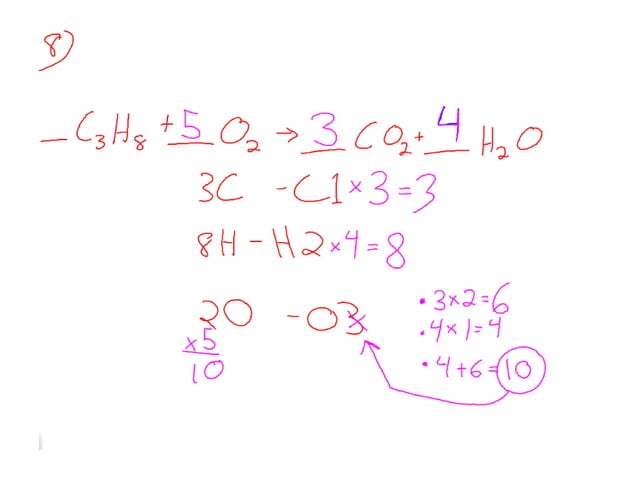 8)
_C₃H₈ + 5 O₂ → 3 CO₂ + 4 H₂O
3C - C1 × 3 = 3
8H - H2 × 4 = 8
2O - O3
×5
10
• 3×2=6
• 4×1=4
• 4+6=10